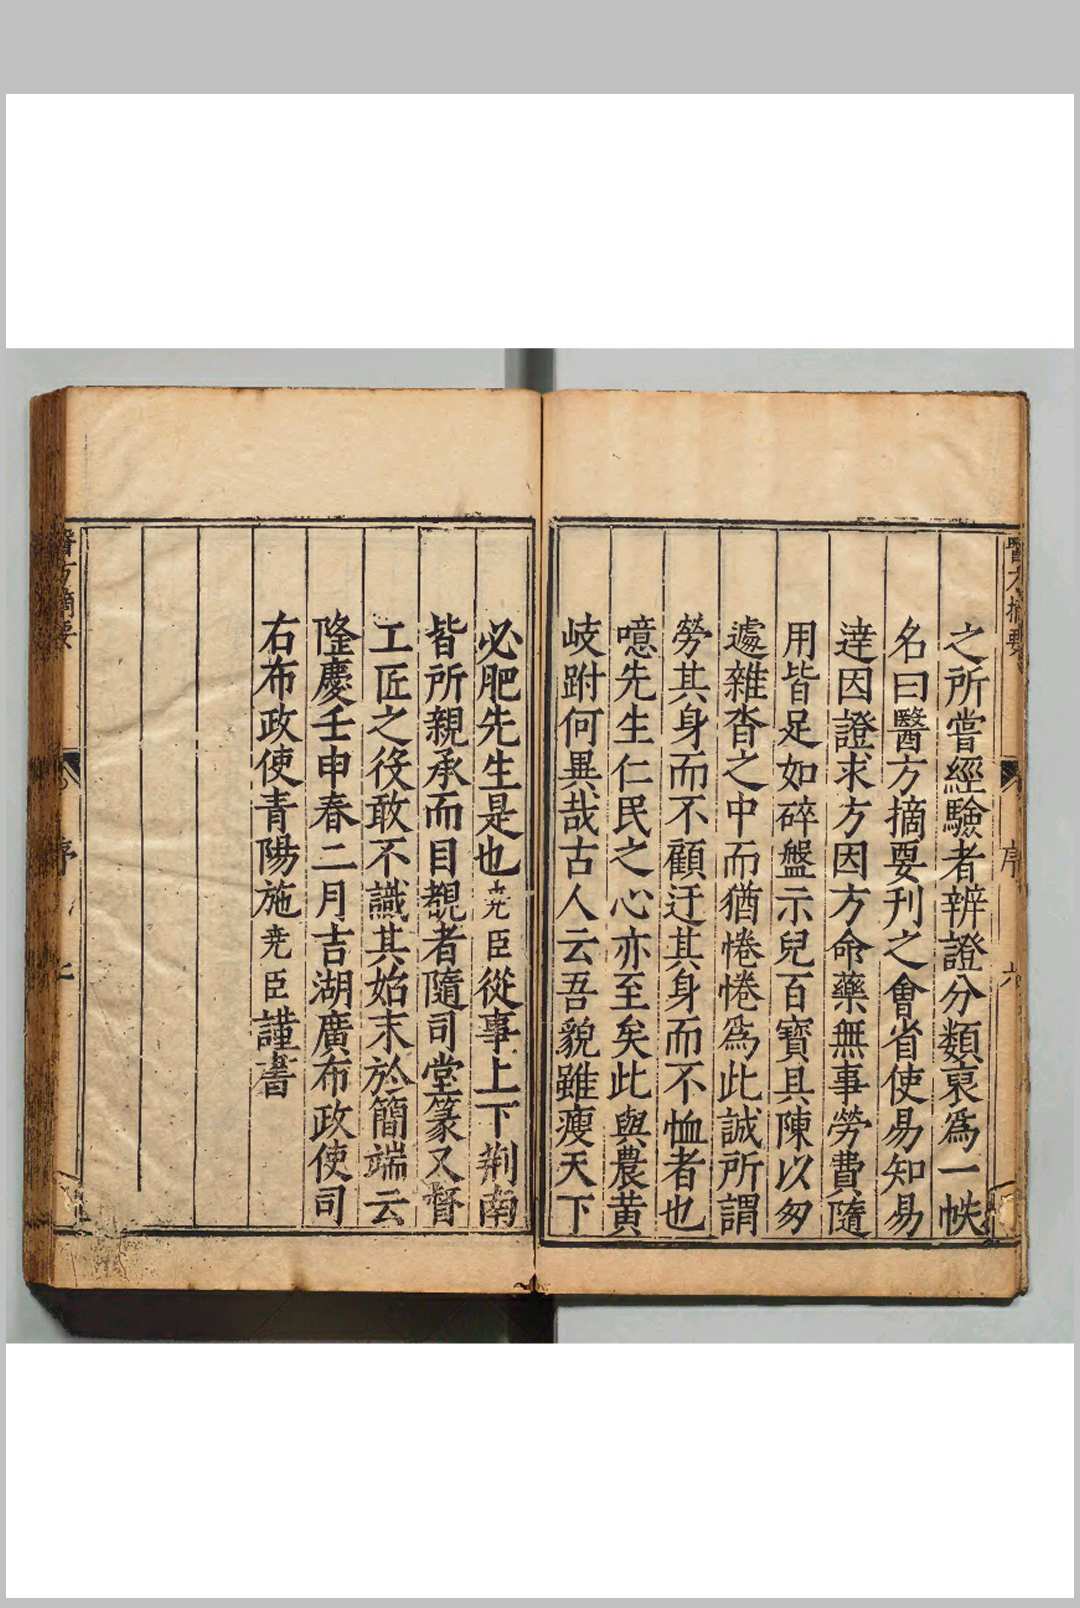 醫方摘要
序
六
之所嘗經驗者辨證分類裒爲一帙
名曰醫方摘要刊之會省使易知易
達因證求方因方命藥無事勞費隨
用皆足如碎盤示兒百寶具陳以匆
遽雜沓之中而猶惓惓爲此誠所謂
勞其身而不顧迂其身而不恤者也
噫先生仁民之心亦至矣此與農黄
岐跗何異哉古人云吾貌雖瘦天下
必肥先生是也尭臣從事上下荆南
皆所親承而目覩者隨司堂篆又督
工匠之役敢不識其始末於簡端云
隆慶壬申春二月吉湖廣布政使司
右布政使青陽施尭臣謹書
醫方摘要
序